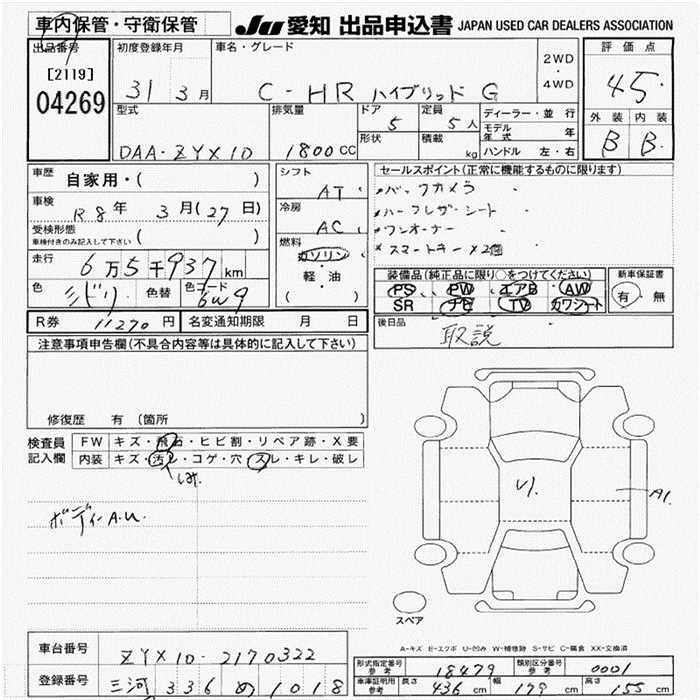 車内保管・守衛保管 JU 愛知 出品申込書 JAPAN USED CAR DEALERS ASSOCIATION
出品番号 初度登録年月 車名・グレード 評価点
[2119] 2WD
04269 31 3月 C-HR ハイブリッド G ・ 4.5
4WD
型式 排気量 ドア 定員 ディーラー・並行 外装 内装
5 5人 モデル年式 年 B B
DAA-ZYX10 1800cc 形状 積載 kg ハンドル 左・右
車歴 自家用・( ) シフト AT セールスポイント(正常に機能するものに限ります)
・バックカメラ
車検 R8年 3月(27日) 冷房 AC ・ハーフレザーシート
・ワンオーナー
受検形態 ( ) 燃料 ・スマートキー×2個
車検付きのみ記入して下さい ガソリン
走行 6万5千937km 軽・油 装備品(純正品に限り○をつけてください) 新車保証書
色 色替 色コード 6W9 ( ) PS PW エアB AW 有・無
SR ナビ TV カワシート
R券 11270円 名変通知期限 月 日 後日品 取説
注意事項申告欄(不具合内容等は具体的に記入して下さい)
修復歴 有 (箇所 )
検査員 FW キズ・飛石・ヒビ割・リペア跡・X要
記入欄 内装 キズ・汚レ・コゲ・穴・スレ・キレ・破レ
しみ
ボディA.U. A1
スペア
A-キズ E-エクボ U-凹み W-補修跡 S-サビ C-腐食 XX-交換済
車台番号 ZYX10-2170322
形式指定番号 参考 18479 類別区分番号 参考 0001
登録番号 三河 336 め 1018 車庫証明用 参考 長さ 436cm 幅 179cm 高さ 155cm